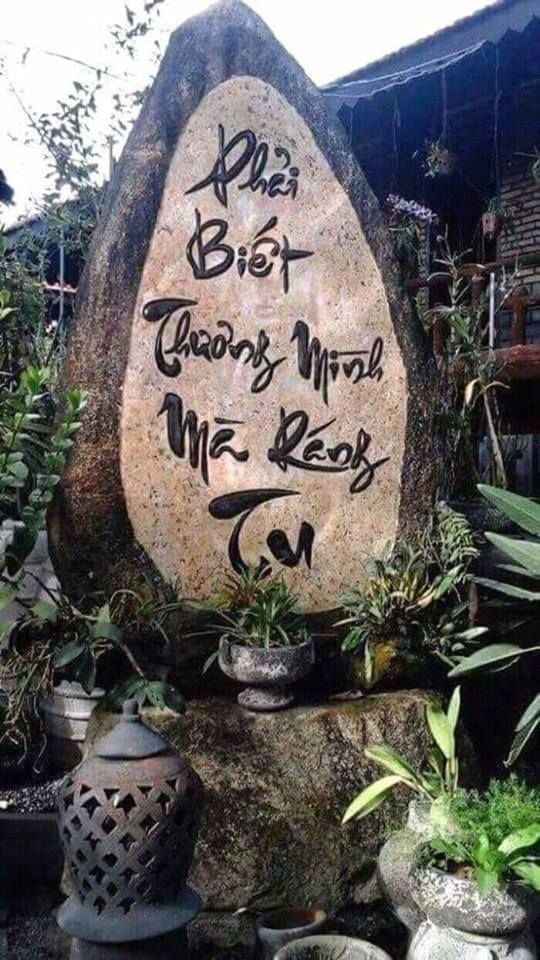 Phải
Biết
Thương Mình
Mà Ráng
Tu